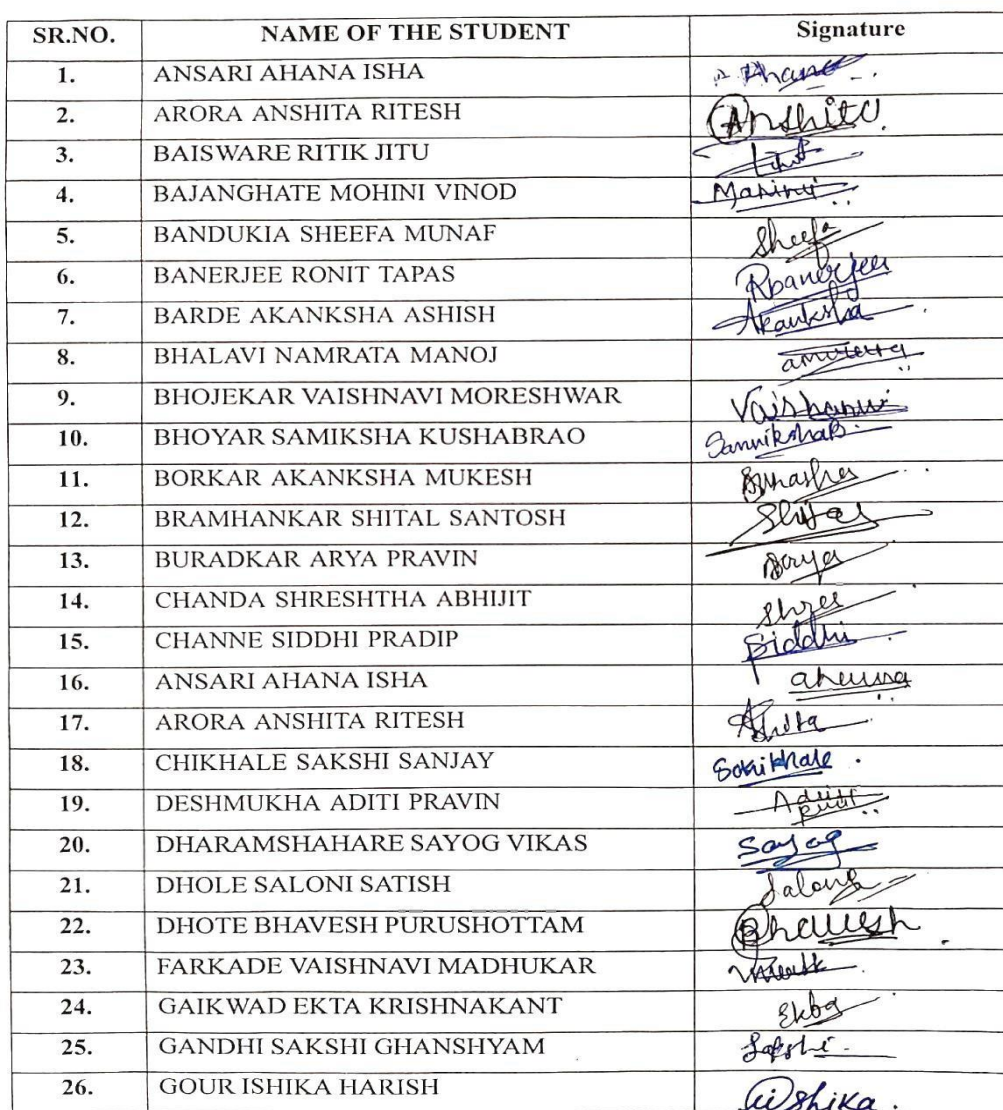 SR.NO. NAME OF THE STUDENT Signature
1. ANSARI AHANA ISHA Ahana
2. ARORA ANSHITA RITESH Anshita
3. BAISWARE RITIK JITU
4. BAJANGHATE MOHINI VINOD
5. BANDUKIA SHEEFA MUNAF Sheefa
6. BANERJEE RONIT TAPAS Rbanerjee
7. BARDE AKANKSHA ASHISH Akanksha
8. BHALAVI NAMRATA MANOJ
9. BHOJEKAR VAISHNAVI MORESHWAR
10. BHOYAR SAMIKSHA KUSHABRAO
11. BORKAR AKANKSHA MUKESH
12. BRAMHANKAR SHITAL SANTOSH
13. BURADKAR ARYA PRAVIN Aarya
14. CHANDA SHRESHTHA ABHIJIT Shree
15. CHANNE SIDDHI PRADIP Siddhi
16. ANSARI AHANA ISHA
17. ARORA ANSHITA RITESH
18. CHIKHALE SAKSHI SANJAY
19. DESHMUKHA ADITI PRAVIN
20. DHARAMSHAHARE SAYOG VIKAS Sayog
21. DHOLE SALONI SATISH
22. DHOTE BHAVESH PURUSHOTTAM Bhavesh
23. FARKADE VAISHNAVI MADHUKAR
24. GAIKWAD EKTA KRISHNAKANT Ekta
25. GANDHI SAKSHI GHANSHYAM
26. GOUR ISHIKA HARISH